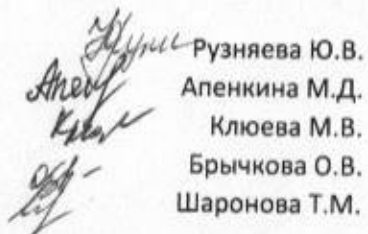 Рузняева Ю.В.
Апенкина М.Д.
Клюева М.В.
Брычкова О.В.
Шаронова Т.М.